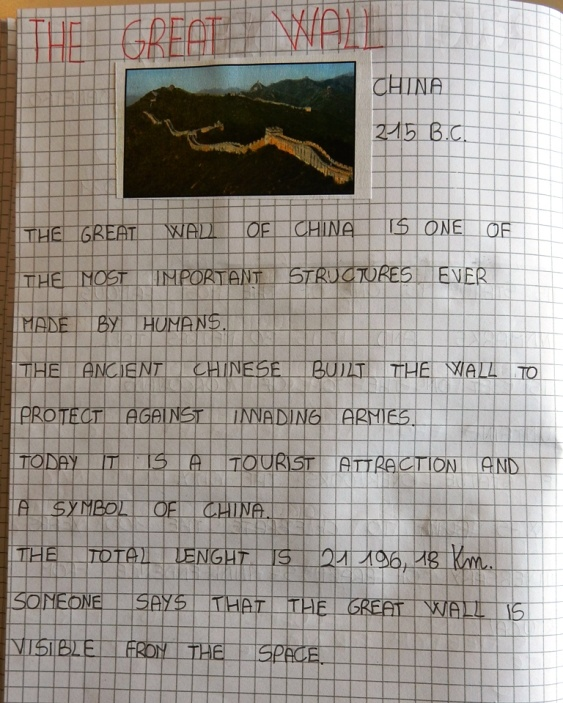 THE GREAT WALL
CHINA
215 B.C.
THE GREAT WALL OF CHINA IS ONE OF
THE MOST IMPORTANT STRUCTURES EVER
MADE BY HUMANS.
THE ANCIENT CHINESE BUILT THE WALL TO
PROTECT AGAINST INVADING ARMIES.
TODAY IT IS A TOURIST ATTRACTION AND
A SYMBOL OF CHINA.
THE TOTAL LENGHT IS 21 196,18 Km.
SOMEONE SAYS THAT THE GREAT WALL IS
VISIBLE FROM THE SPACE.